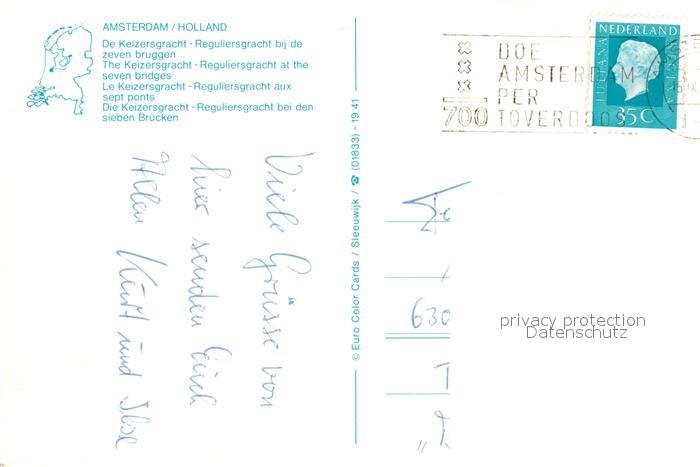 AMSTERDAM / HOLLAND
De Keizersgracht - Reguliersgracht bij de
zeven bruggen
The Keizersgracht - Reguliersgracht at the
seven bridges
Le Keizersgracht - Reguliersgracht aux
sept ponts
Die Keizersgracht - Reguliersgracht bei den
sieben Brücken
Viele Grüsse von
hier senden Euch
Allen Kurt und Ilse
© Euro Color Cards / Sleeuwijk / ☎ (01833) - 19 41
DOE
AMSTERDAM
PER
700 TOVERDOOS
NEDERLAND
JULIANA REGINA
35 C
630
privacy protection
Datenschutz